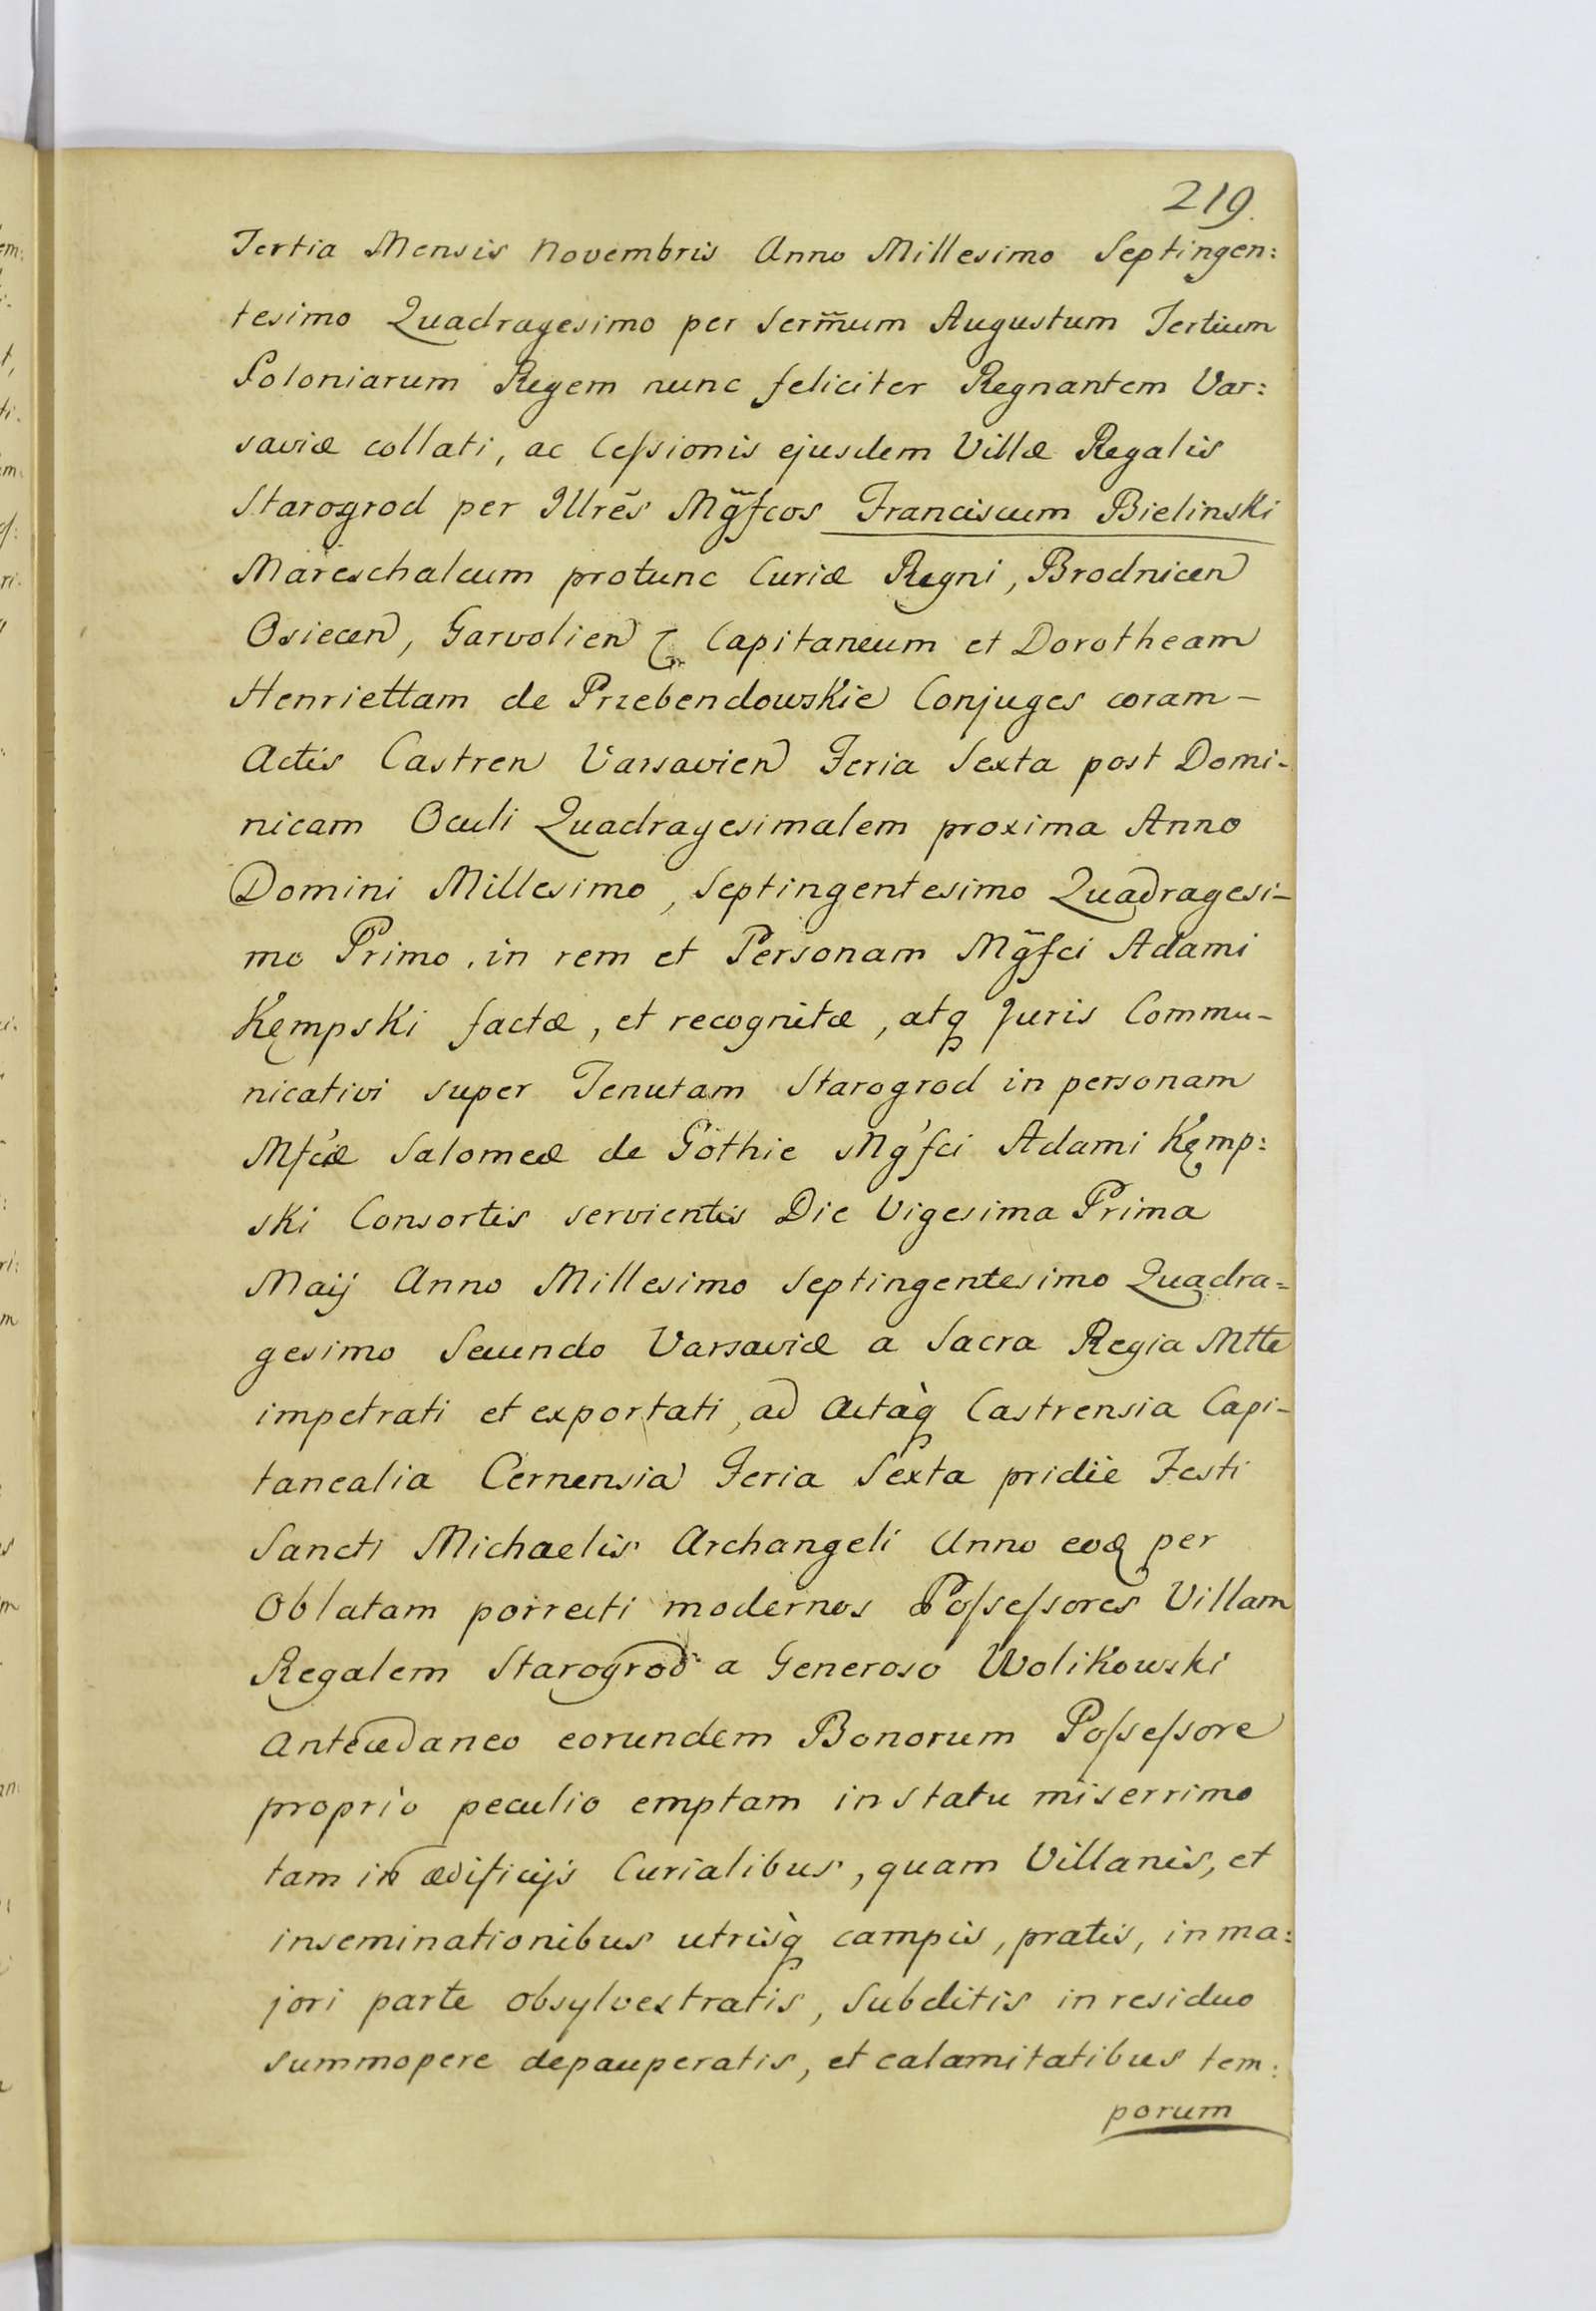 219.
Tertia Mensis Novembris Anno Millesimo Septingen:
tesimo Quadragesimo per Serm̃um Augustum Tertium
Poloniarum Regem nunc feliciter Regnantem Var:
saviæ collati, ac Cessionis ejusdem Villæ Regalis
Starogrod per Illrẽs Mg̃fcos Franciscum Bielinski
Mareschalcum protunc Curiæ Regni, Brodnicen
Osiecen, Garvolien Capitaneum et Dorotheam
Henriettam de Przebendowskie Conjuges coram –
Actis Castren Varsavien Feria Sexta post Domi-
nicam Oculi Quadragesimalem proxima Anno
Domini Millesimo, Septingentesimo Quadragesi-
mo Primo, in rem et Personam Mg̃fci Adami
Kęmpski factæ, et recognitæ, atq Juris Commu-
nicativi super Tenutam Starogrod in personam
Mfcæ Salomeæ de Göthie Mg'fci Adami Kęmp:
ski Consortis servientis Die Vigesima Prima
Maij Anno Millesimo Septingentesimo Quadra=
gesimo Secundo Varsaviæ a Sacra Regia Mtte
impetrati et exportati, ad Actàq Castrensia Capi-
tanealia Cernensia Feria Sexta pridie Festi
Sancti Michaelis Archangeli Anno eoq per
Oblatam porrecti modernos Possessores Villam
Regalem Starogrod a Generoso Wolikowski
Antecedaneo eorundem Bonorum Possessore
propriò peculio emptam in statu miserrimo
tam in ædificijs Curialibus, quam Villanis, et
inseminationibus utrisq̀ campis, pratis, in ma:
jori parte obsylvestratis, Subditis in residuo
summopere depauperatis, et calamitatibus tem:
porum